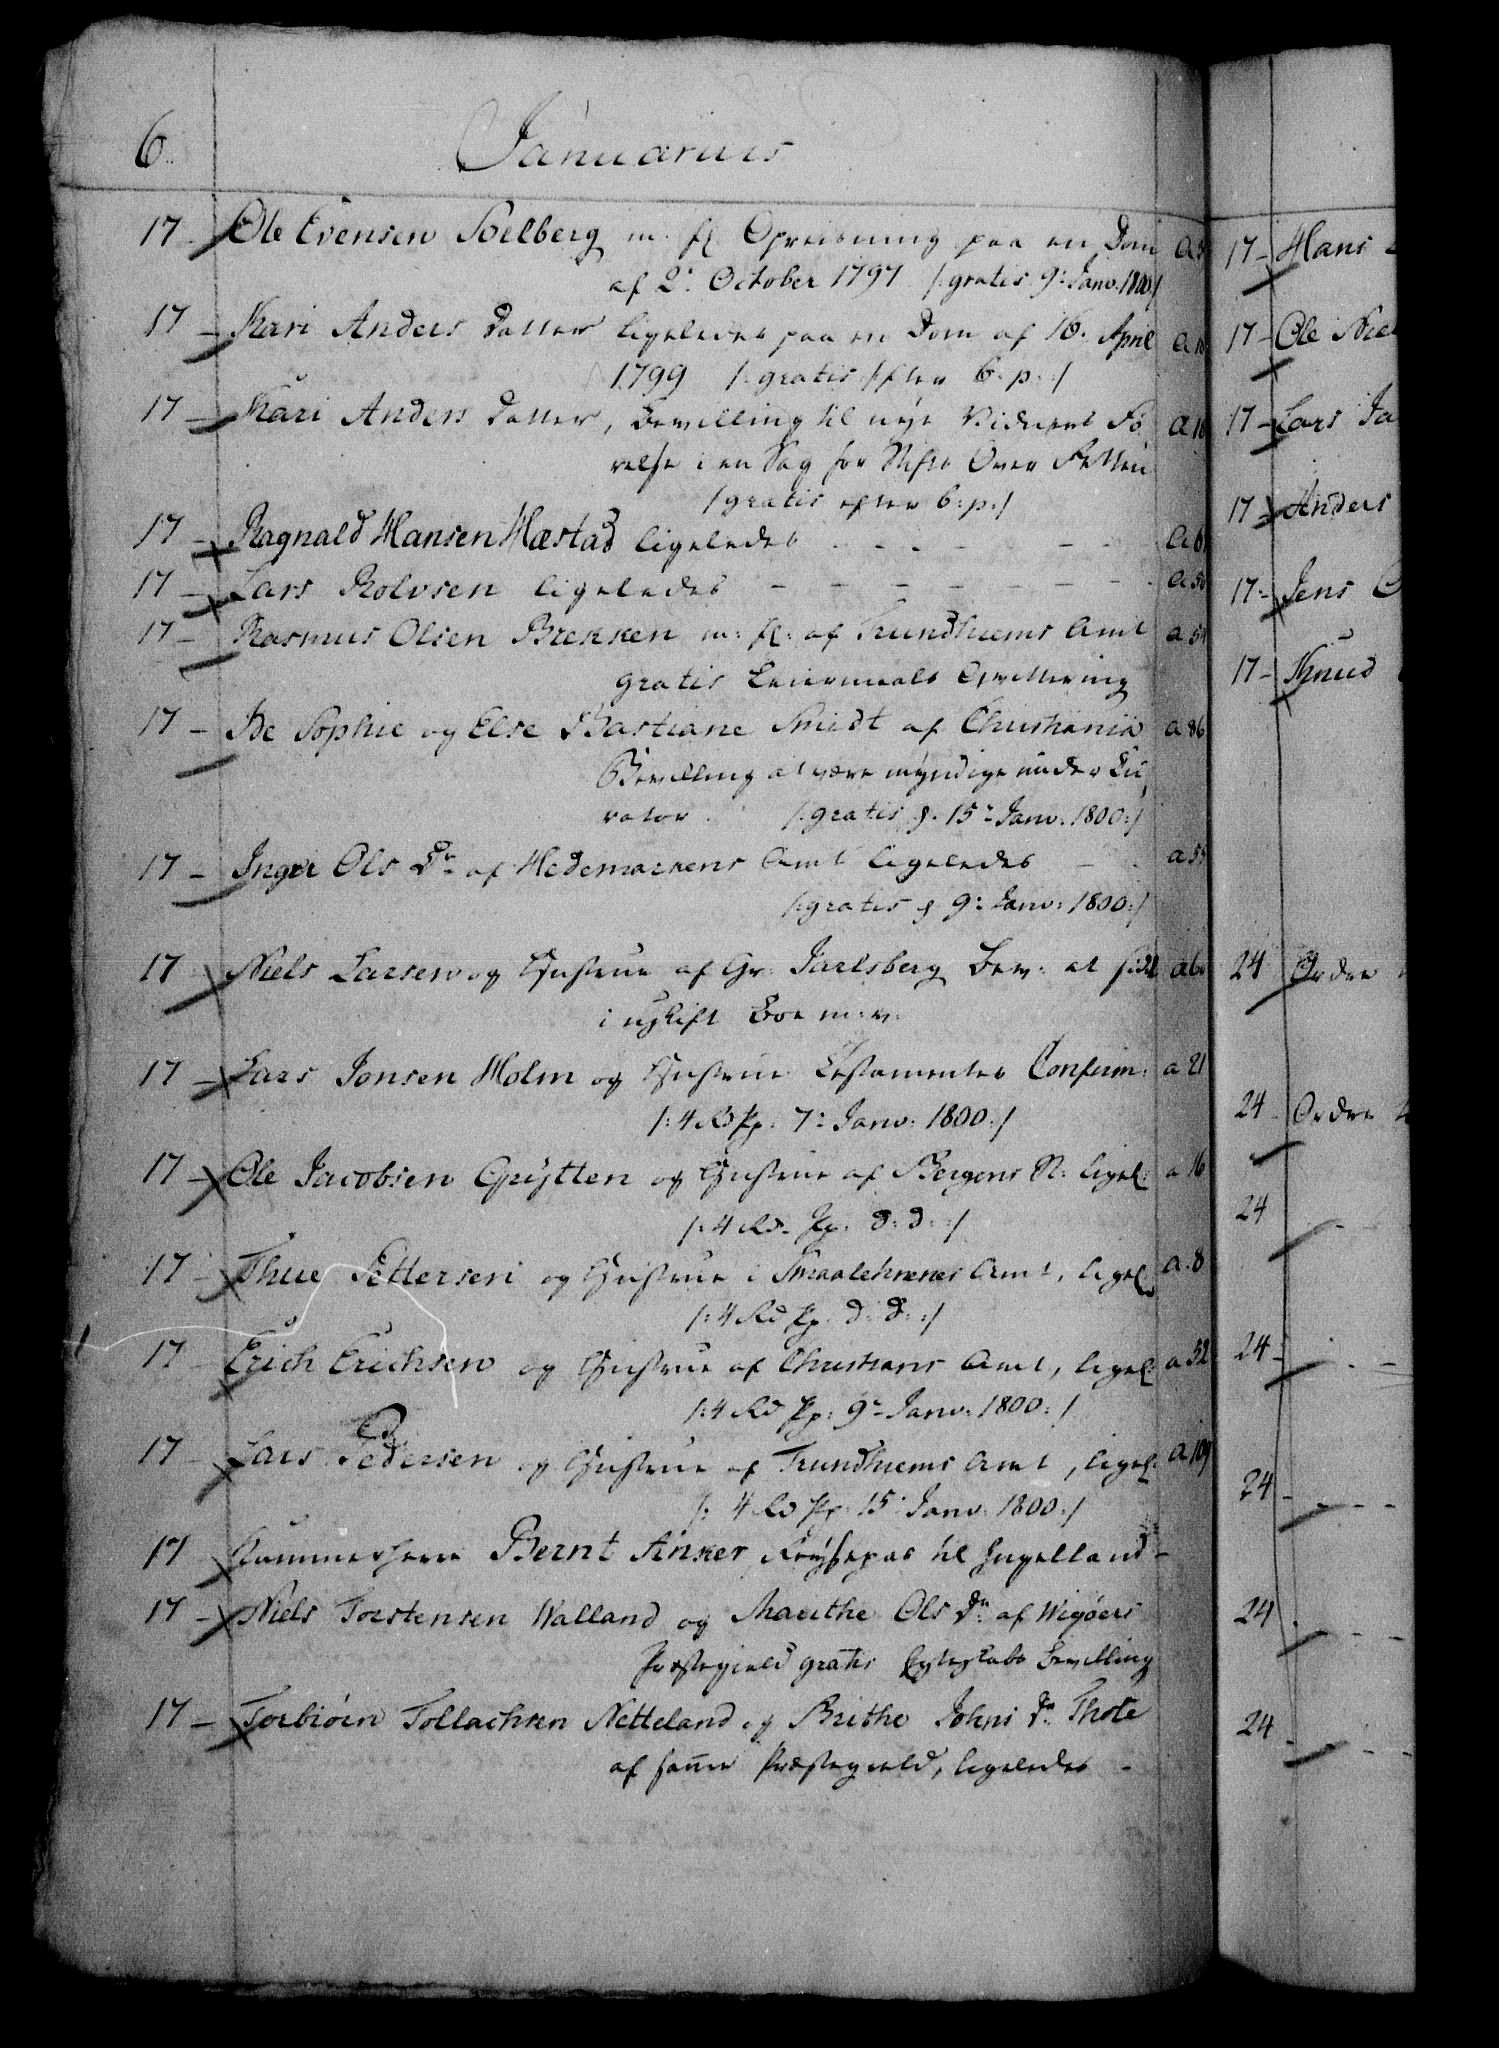 6 Januarius
17 - Ole Evensen Solberg m: fl: Opreisning paa en Dom
af 2: October 1797 /: gratis 9: Janv: 1800 :/
17 - Kari Anders Datter ligeledes paa en Dom af 16. April
1799 /: gratis efter 6: p: :/
17 - Kari Anders Datter, Bevilling til nye Vidners Fø
relse i en Sag for Stifts Over Retten
/ gratis efter 6: p: /
17 - Ragnald Hansen Hæstad ligeledes - - - - - -
17 - Lars Rolvsen ligeledes - - - - - - - - a 50
17 - Rasmus Olsen Brekken m: fl: af Trundhiems Amt a 54
gratis Leiermaals Oprettning
17 - Be Sophie og Else Bastiane Smidt af Christiania a 86
Bevilling at være myndige under Cu
rator /: gratis p. 15 - Janv: 1800 :/
17 - Inger Ols Dr af Hedemarkens Amt ligeledes - - a 55
/: gratis p 9: Janv: 1800 :/
17 Niels Larsen og Hustrue af Gr: Jarlsberg Bev: at sidde
i uskift Boe m: v:
17 - Lars Jonsen Holm og Hustrue Testamentes Confirm: a 21
/: 4 Rd Pp: 7: Janv: 1800 :/
17 - Ole Jacobsen Grytten og Hustrue af Bergens St: ligel: a 16
/: 4 Rd Pp: d: d: :/
17 - Thue Pettersen og Hustrue i Smaalehnenes Amt, ligel: a. 8
/: 4 Rd Pp: d: d: :/
17 - Erich Erichsen og Hustrue af Christians Amt, ligel: a 52
/: 4 Rd Pp: 9 - Janv: 1800 :/
17 - Lars Pedersen og Hustrue af Trundhiems Amt, ligel: a 109
/: 4 Rd Pp: 15: Janv: 1800 :/
17 Kammerherre Bernt Anker Reysepas til Engelland -
17 - Niels Torstensen Walland og Marithe Ols Dr af Wigøers
Præstegield gratis Egteskabs Bevilling
17 - Torbiörn Tollachsen Netteland og Brithe Johns Dr Thote
af samme Præstegield, ligeledes -
17 - Hans
17 - Ole Niel
17 - Lars Ja
17 - Anders
17 - Jens
17 - Knud
24 Ordre
24 - Ordre
24 - -
24 - - -
24 - - - -
24 - - -
24 - - -